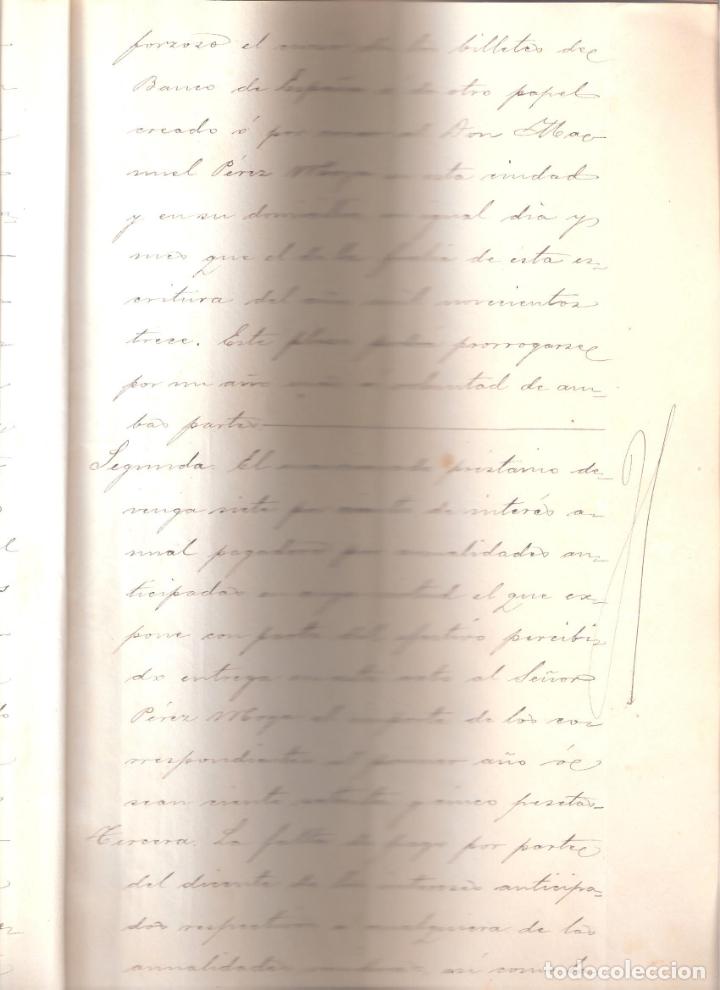 forzoso el curso de los billetes del
Banco de España ó de otro papel
creado ó por crear al Don Ma-
nuel Pérez Moya en esta ciudad
y en su domicilio en igual dia y
mes que el de la fecha de esta es-
critura del año mil novecientos
trece. Este plazo podrá prorrogarse
por un año más á voluntad de am-
bas partes
Segunda. El prestamo de-
venga siete por ciento de interés a-
nual pagadero por anualidades an-
ticipadas en cuya virtud el que ex-
pone con parte del efectivo percibi-
do entrega en este acto al Señor
Pérez Moya el importe de los co-
rrespondientes al primer año ó
sean ciento setenta y cinco pesetas
Tercera. La falta de pago por parte
del dicente de los intereses anticipa-
dos respectivos á cualquiera de las
anualidades así como
todocoleccion
todocoleccion.net